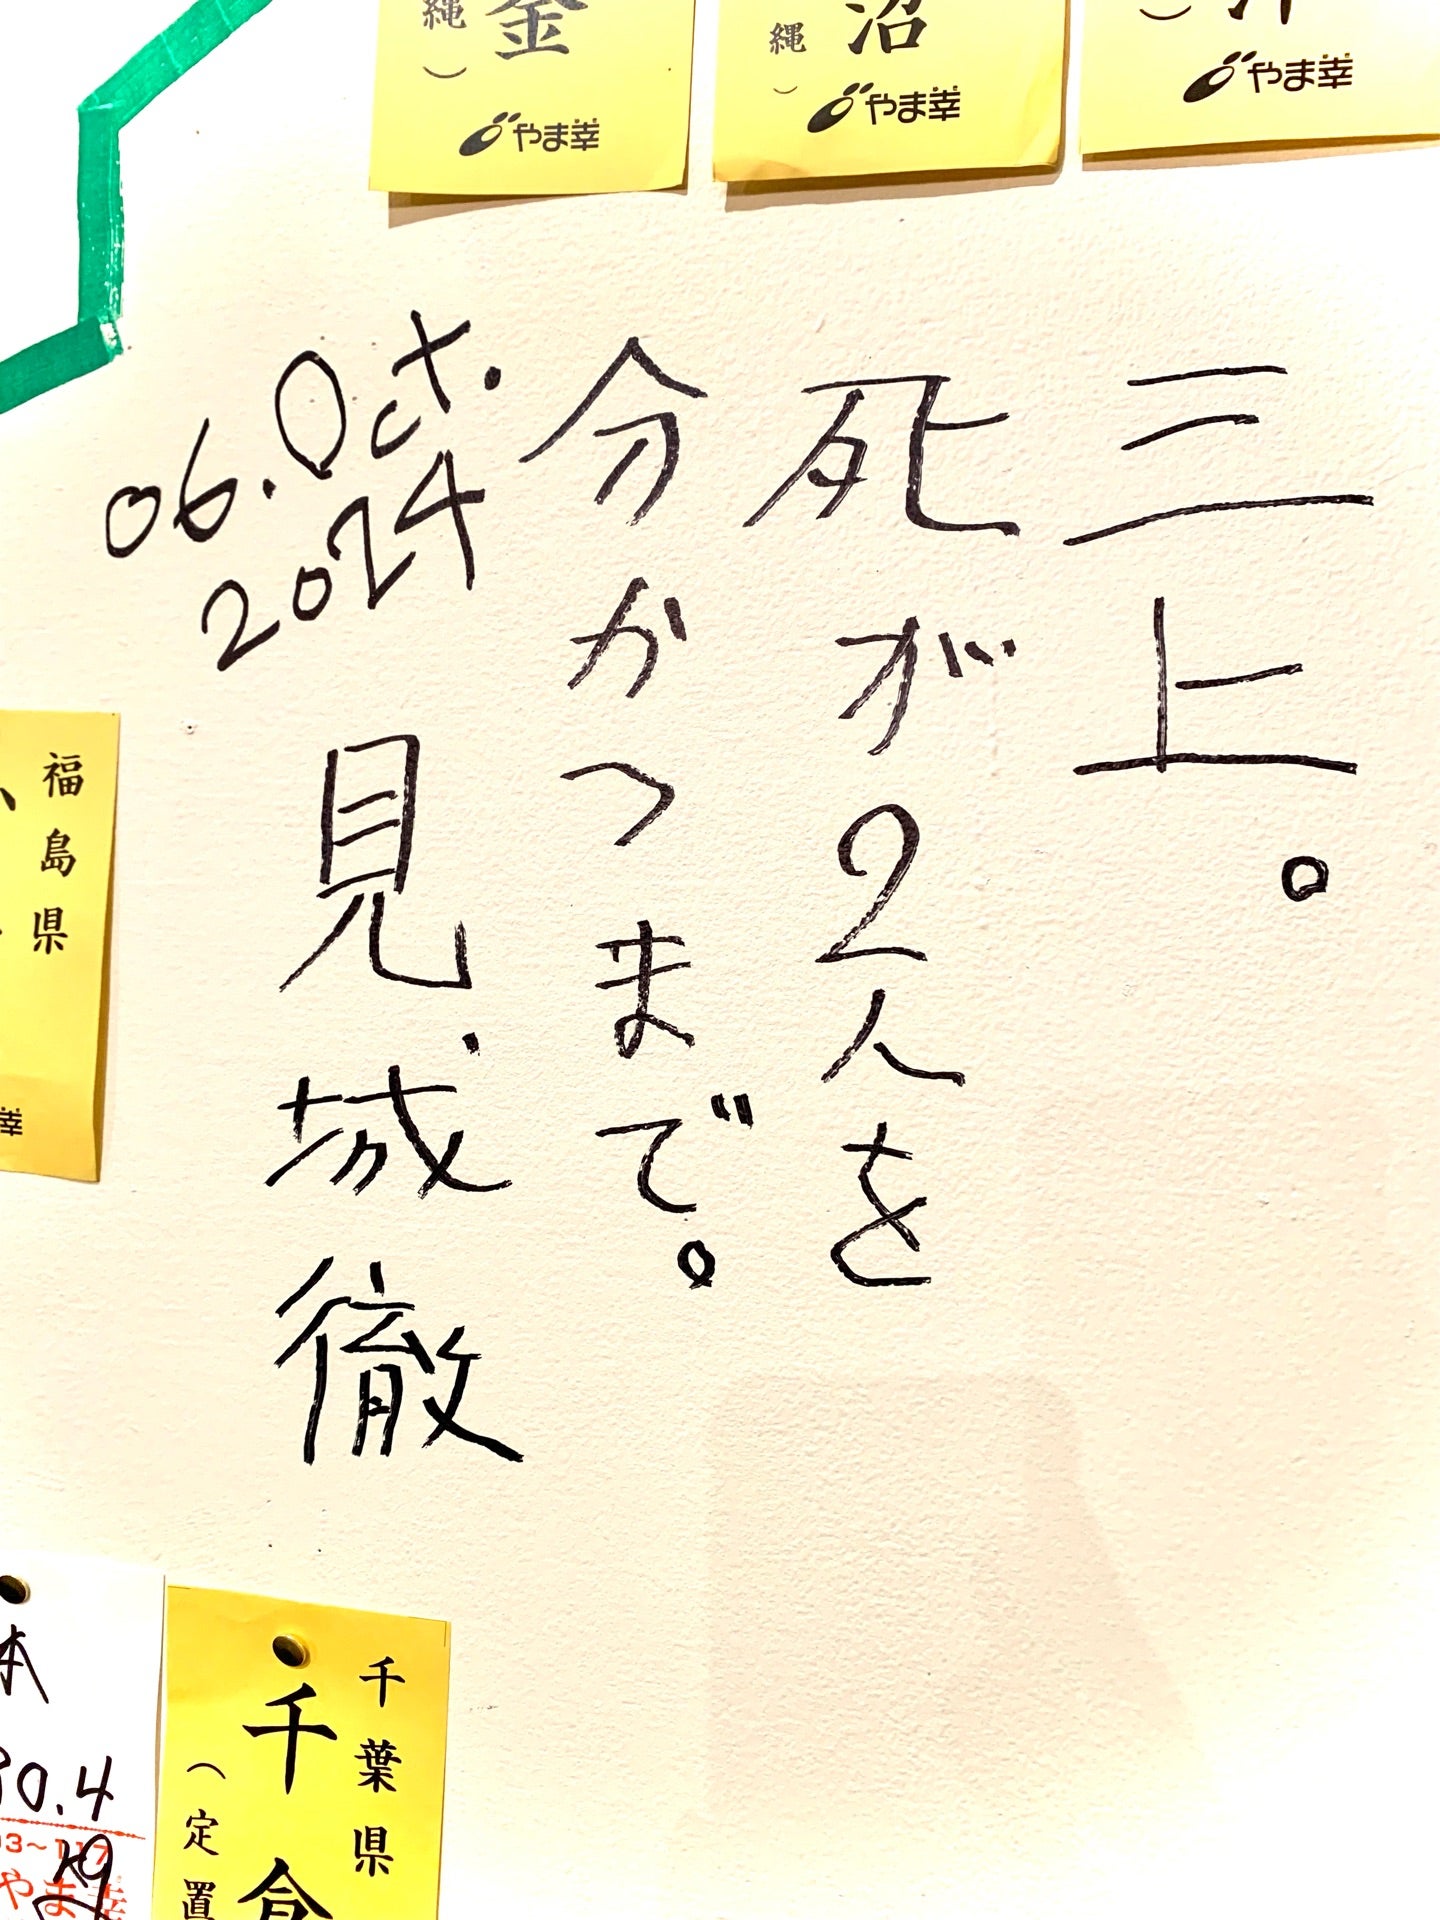 縄）
金
やま幸
縄）
沼
やま幸
）
やま幸
三上。
死が2人を
分かつまで。
06.Oct.
2024
見城徹
福島県
幸
本
30.4
やま幸
千葉県
千倉
（定置